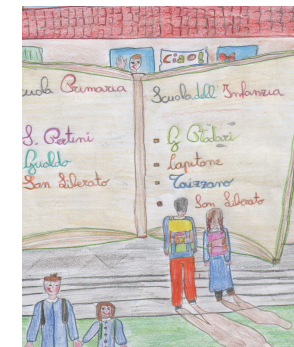 Ciao!
uola Primaria
S. Pertini
Gualdo
San Liberato
Scuola dell'Infanzia
G. Rodari
Capitone
Taizzano
San Liberato